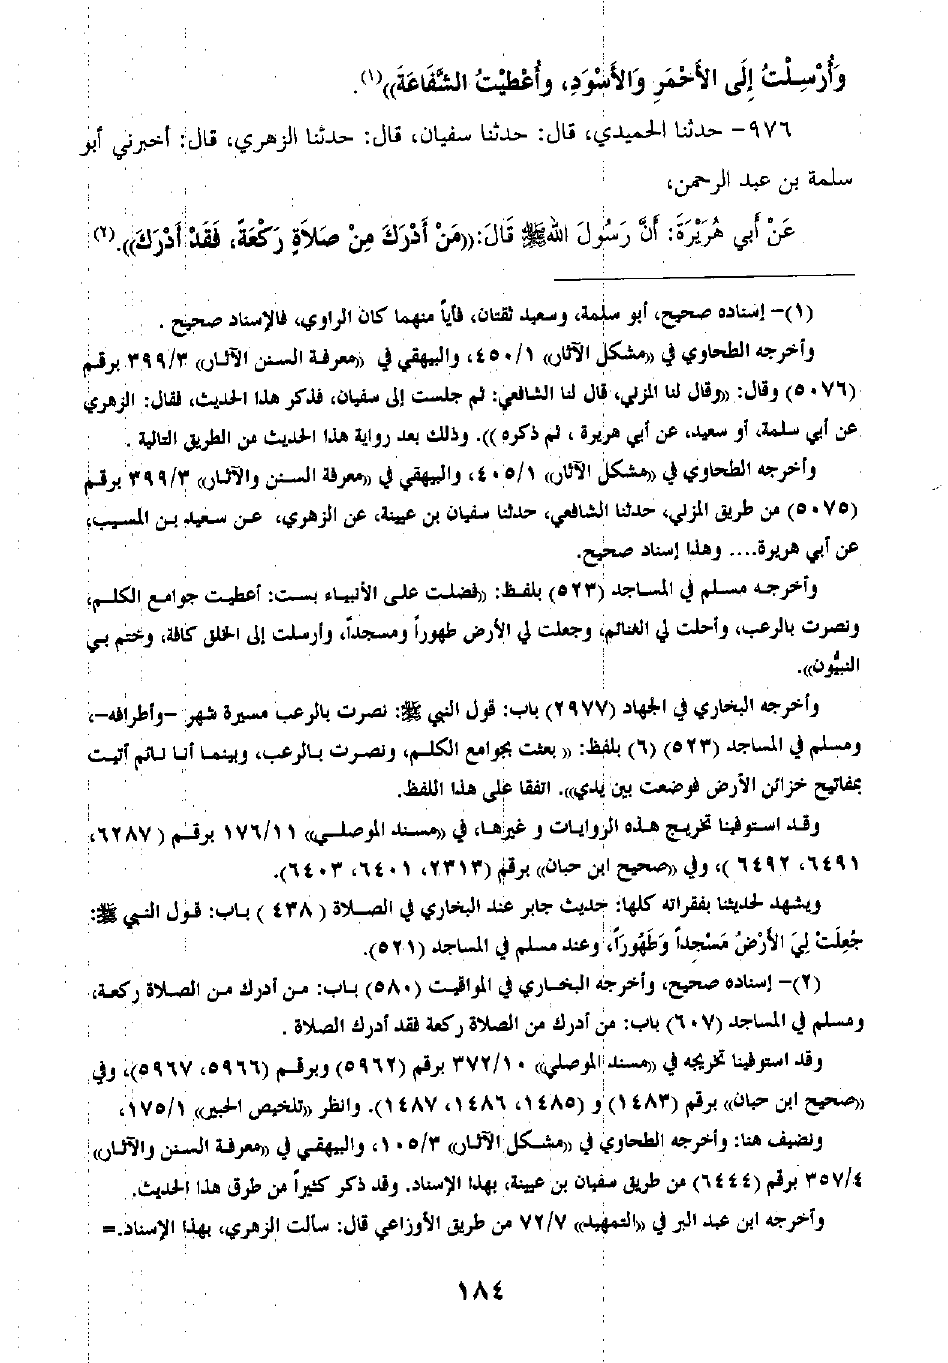 وَأُرْسِلْتُ إِلَى الأَحْمَرِ وَالأَسْوَدِ، وأُعْطِيْتُ الشَّفَاعَةَ»(١).
٩٧٦- حدثنا الحميدي، قال: حدثنا سفيان، قال: حدثنا الزهري، قال: أخبرني أبو
سلمة بن عبد الرحمن،
عَنْ أَبي هُرَيْرَةَ: أَنَّ رَسُولَ اللهِ ﷺ قَالَ: «مَنْ أَدْرَكَ مِنْ صَلاَةٍ رَكْعَةً، فَقَدْ أَدْرَكَ».(٢)
(١)- إسناده صحيح، أبو سلمة، وسعيد ثقتان، فأياً منهما كان الراوي، فالإسناد صحيح .
وأخرجه الطحاوي في «مشكل الآثار» ٤٥٠/١، والبيهقي في «معرفة السنن الآثار» ٣٩٩/٣ برقم
(٥٠٧٦) وقال: «وقال لنا المزني، قال لنا الشافعي: ثم جلست إلى سفيان، فذكر هذا الحديث، فقال: الزهري
عن أبي سلمة، أو سعيد، عن أبي هريرة ، ثم ذكره ». وذلك بعد رواية هذا الحديث من الطريق التالية .
وأخرجه الطحاوي في «مشكل الآثار» ٤٠٥/١، والبيهقي في «معرفة السنن والآثار» ٣٩٩/٣ برقم
(٥٠٧٥) من طريق المزني، حدثنا الشافعي، حدثنا سفيان بن عيينة، عن الزهري، عن سعيد بن المسيب،
عن أبي هريرة.... وهذا إسناد صحيح.
وأخرجه مسلم في المساجد (٥٢٣) بلفظ: «فضلت على الأنبياء بست: أعطيت جوامع الكلم،
ونصرت بالرعب، وأحلت لي الغنائم، وجعلت لي الأرض طهوراً ومسجداً، وأرسلت إلى الخلق كافة، وختم بي
النبيُّون».
وأخرجه البخاري في الجهاد (٢٩٧٧) باب: قول النبي ﷺ: نصرت بالرعب مسيرة شهر -وأطرافه-،
ومسلم في المساجد (٥٢٣) (٦) بلفظ: « بعثت بجوامع الكلم، ونصرت بالرعب، وبينما أنا نائم أتيت
بمفاتيح خزائن الأرض فوضعت بين يدي». اتفقا على هذا اللفظ.
وقد استوفينا تخريج هذه الروايات و غيرها، في «مسند الموصلي» ١٧٦/١١ برقم ( ٦٢٨٧،
٦٤٩١، ٦٤٩٢ )، وفي «صحيح ابن حبان» برقم (٢٣١٣، ٦٤٠١، ٦٤٠٣).
ويشهد لحديثنا بفقراته كلها: حديث جابر عند البخاري في الصلاة ( ٤٣٨ ) باب: قول النبي ﷺ:
جُعِلَتْ لِيَ الأَرْضُ مَسْجِداً وَطَهُوراً، وعند مسلم في المساجد (٥٢١).
(٢)- إسناده صحيح، وأخرجه البخاري في المواقيت (٥٨٠) باب: من أدرك من الصلاة ركعة،
ومسلم في المساجد (٦٠٧) باب: من أدرك من الصلاة ركعة فقد أدرك الصلاة .
وقد استوفينا تخريجه في «مسند الموصلي» ٣٧٢/١٠ برقم (٥٩٦٢) وبرقم (٥٩٦٦، ٥٩٦٧)، وفي
«صحيح ابن حبان» برقم (١٤٨٣) و (١٤٨٥، ١٤٨٦، ١٤٨٧). وانظر «تلخيص الحبير» ١٧٥/١،
ونضيف هنا: وأخرجه الطحاوي في «مشكل الآثار» ١٠٥/٣، والبيهقي في «معرفة السنن والآثار»
٣٥٧/٤ برقم (٦٤٤٤) من طريق سفيان بن عيينة، بهذا الإسناد. وقد ذكر كثيراً من طرق هذا الحديث.
وأخرجه ابن عبد البر في «التمهيد» ٧٢/٧ من طريق الأوزاعي قال: سألت الزهري، بهذا الإسناد.=
١٨٤